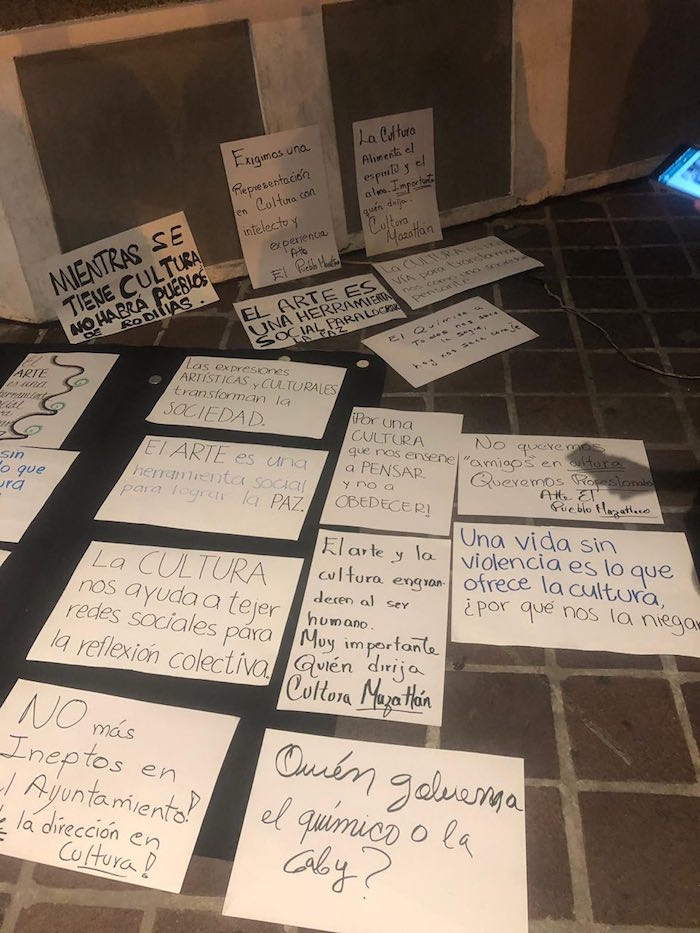 Exigimos una
Representación
en Cultura con
intelecto y
experiencia
Atte
El Pueblo
La Cultura
Alimenta el
espíritu y el
alma. Importante
quén dirija.
Cultura
Mazatlán
MIENTRAS SE
TIENE CULTURA
NO HABRÁ PUEBLOS
DE RODILLAS.
EL ARTE ES
UNA HERRAMIENTA
SOCIAL PARA LOGRAR
LA PAZ
LA CULTURA es una
VÍA para transformar
nos como una sociedad
pensante
El Químico a
Todos nos
hoy nos
El
ARTE
es una
sin
lo que
Las expresiones
ARTÍSTICAS y CULTURALES
transforman la
SOCIEDAD.
El ARTE es una
herramienta social
para lograr la PAZ.
¡Por una
CULTURA
que nos enseñe
a PENSAR
y no a
OBEDECER!
No queremos
"amigos" en cultura
Queremos Profesionales
Atte El
Pueblo Mazatleco
La CULTURA
nos ayuda a tejer
redes sociales para
la reflexión colectiva.
El arte y la
cultura engran-
decen al ser
humano.
Muy importante
Quién dirija
Cultura Mazatlán
Una vida sin
violencia es lo que
ofrece la cultura,
¿por qué nos la niegan
NO más
Ineptos en
el Ayuntamiento!
la dirección en
Cultura!
Quién gobierna
el químico o la
Gaby?